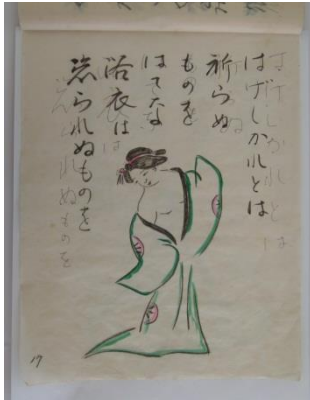 はげしかれとは
祈らぬ
ものを
はてな
浴衣は
着られぬものを
17